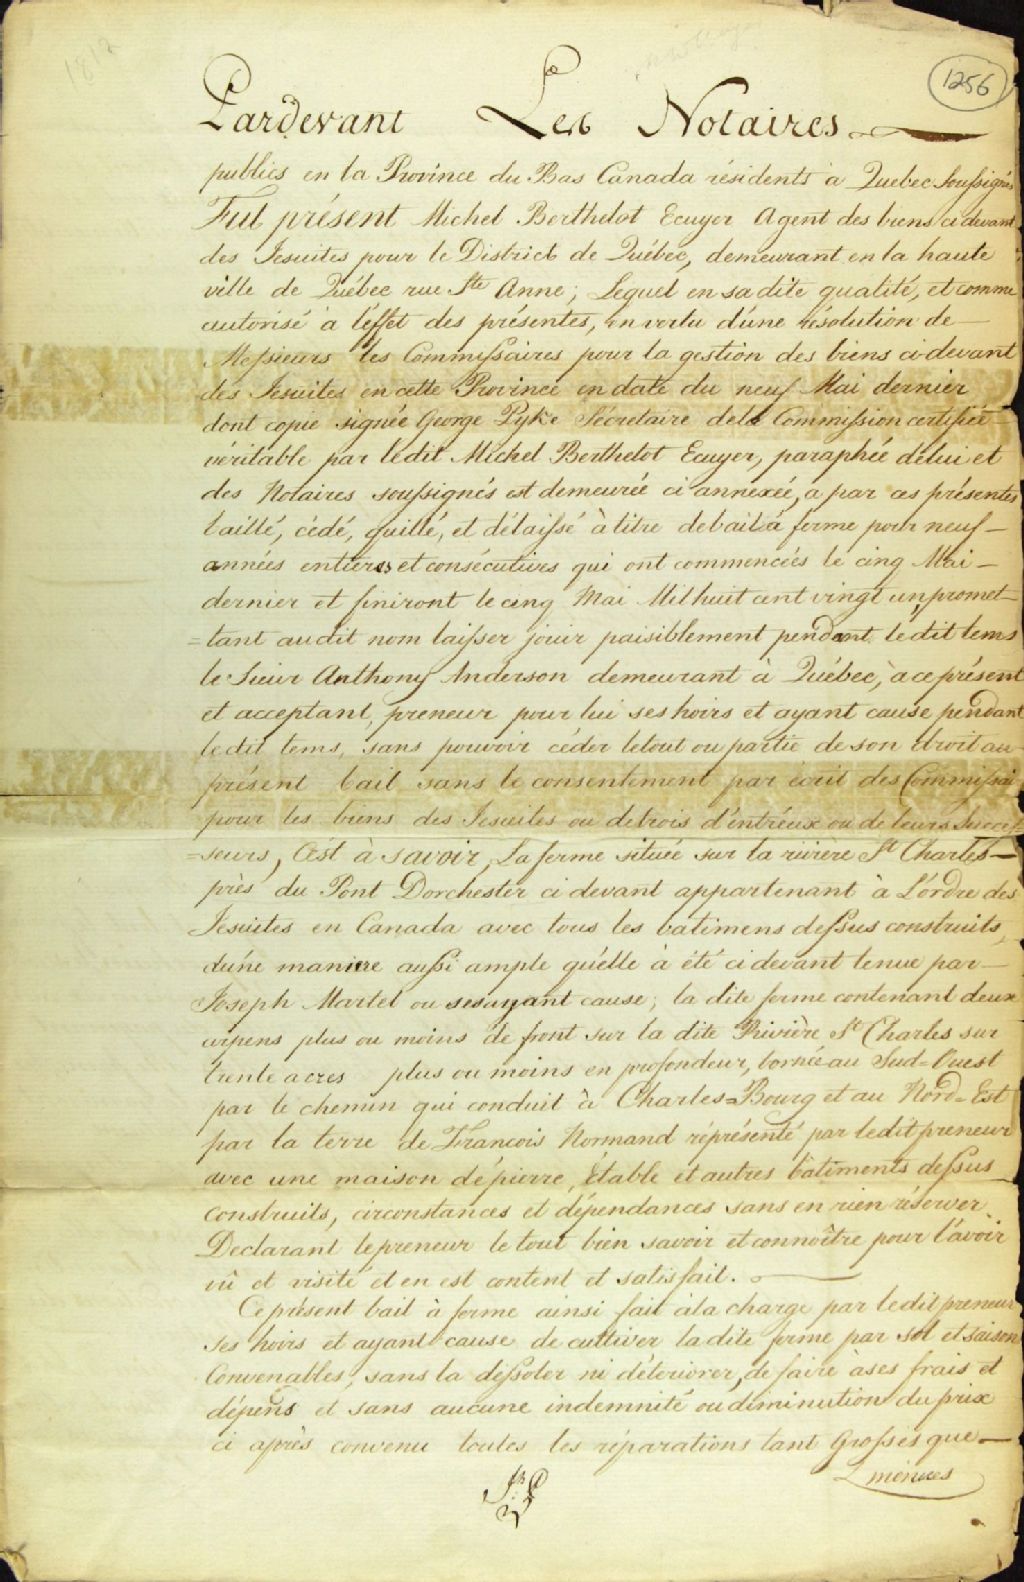 1812
1256
Pardevant Les Notaires
publics en la Province du Bas Canada résidents à Quebec Soussignés
Fut présent Michel Berthelot Ecuyer Agent des biens ci devant
des Jesuites pour le District de Québec, demeurant en la haute
ville de Québec rue Ste Anne; Lequel en sa dite qualité, et comme
autorisé à l'éffet des présentes, en vertu d'une résolution de
Messieurs les Commissaires pour la gestion des biens ci-devant
des Jesuites en cette Province en date du neuf Mai dernier
dont copie signée George Pyke Sécretaire de la Commission certifiée
véritable par le dit Michel Berthelot Ecuyer, paraphée de lui et
des Notaires soussignés est demeurée ci annexée, a par ces présentes
baillé, cédé, quitté, et délaissé à titre de bail à ferme pour neuf
années entieres et consécutives qui ont commencées le cinq Mai
dernier et finiront le cinq Mai Mil huit cent vingt un, promet-
=tant au dit nom laisser jouir paisiblement pendant le dit tems
le Sieur Anthony Anderson demeurant à Québec, à ce présent
et acceptant, preneur pour lui ses hoirs et ayant cause pendant
le dit tems, sans pouvoir céder le tout ou partie de son droit au
présent bail sans le consentement par écrit des Commissai
pour les biens des Jesuites ou de trois d'entréux ou de leurs Succes-
=seurs, C'est à savoir, La ferme située sur la rivière St Charles
près du Pont Dorchester ci devant appartenant à L'ordre des
Jesuites en Canada avec tous les batimens dessus construits,
d'une maniere aussi ample qu'elle à été ci devant tenue par
Joseph Martel ou ses ayant cause; la dite ferme contenant deux
arpens plus ou moins de front sur la dite Rivière St Charles sur
trente acres plus ou moins en profondeur, bornée au Sud=Ouest
par le chemin qui conduit à Charles=Bourg et au Nord=Est
par la terre de Francois Normand réprésenté par le dit preneur
avec une maison de pierre, étable et autres bâtiments dessus
construits, circonstances et dépendances sans en rien réserver
Declarant le preneur le tout bien savoir et connoître pour l'avoir
vû et visité et en est content et satisfait.
Ce présent bail à ferme ainsi fait à la charge par le dit preneur
ses hoirs et ayant cause de cultiver la dite ferme par sol et saison
Convenables, sans la dessoler ni déteriorer, de faire à ses frais et
dépens et sans aucune indemnité ou diminution du prix
ci après convenu toutes les réparations tant Grosses que
menues